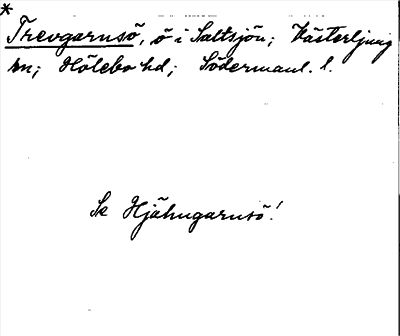 *
Trevgarnsö, ö i Saltsjön; Västerljung
sn; Hölebo hd; Södermanl. l.
Se Hjähngarnsö!